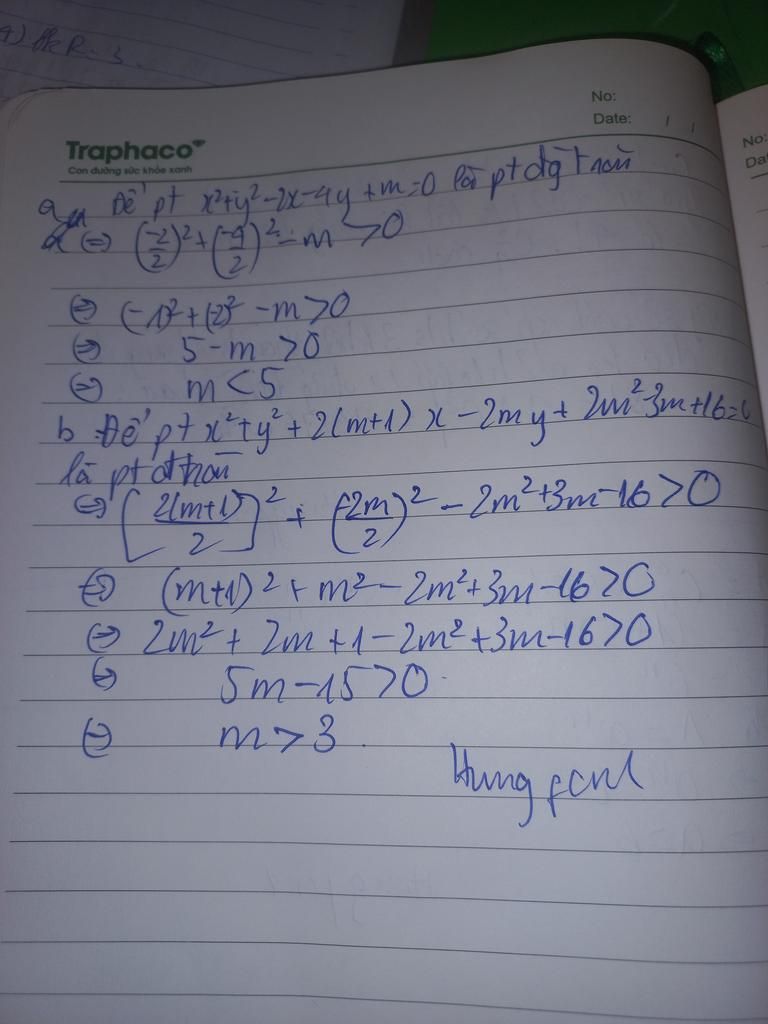 a) tk R. 3
No:
Date: / /
No:
Traphaco
Con đường sức khỏe xanh
a, Để pt x²+y²-2x-4y+m=0 là pt đg tròn
⇔ (-2/2)²+(-4/2)²-m>0
⇔ (-1)²+(-2)²-m>0
⇔ 5-m>0
⇔ m<5
b Để pt x²+y²+2(m+1)x-2my+2m²-3m+16=0
là pt đtròn
⇔ [2(m+1)/2]²+(-2m/2)²-2m²+3m-16>0
⇔ (m+1)²+m²-2m²+3m-16>0
⇔ 2m²+2m+1-2m²+3m-16>0
⇔ 5m-15>0
⇔ m>3.